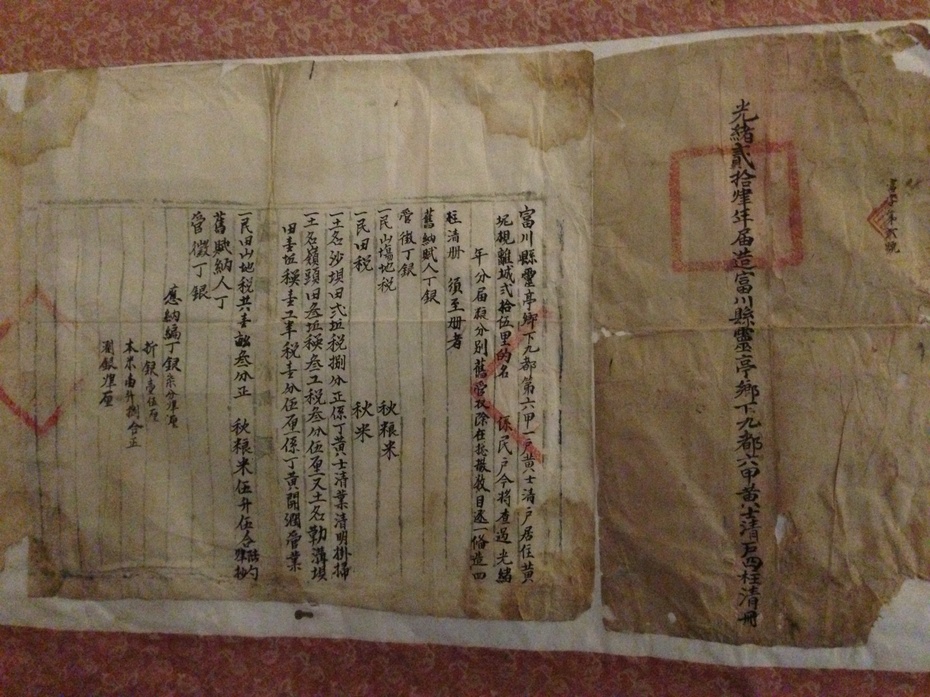 光緒貳拾肆年届造富川縣靈亭鄉下九都六甲黃士清戶四柱清冊
富川縣靈亭鄉下九都第六甲一戶黃士清戶居住黃
坭規離城弍拾伍里的名 係民戶今將查過光緒
年分届 分別舊管收除在 散數目逐一偹造四
柱清册 須至册者
舊納賦人丁銀
管徵丁銀
一民山塲地税 秋粮米
一民田税 秋米
一土名沙埧田弍坵税捌分正係丁黃士清業清明掛掃
一土名嶺頭田叁坵稉叁工税叁分伍厘又土名勒 埧
田壹坵稉壹工半税壹分伍厘係丁黃開 常業
一民田山地税共壹畝叁分正 秋粮米伍升伍合 勺
舊賦納人丁
管徵丁銀
應納編丁銀
折銀壹伍厘
本米南 捌合正
閏銀 厘